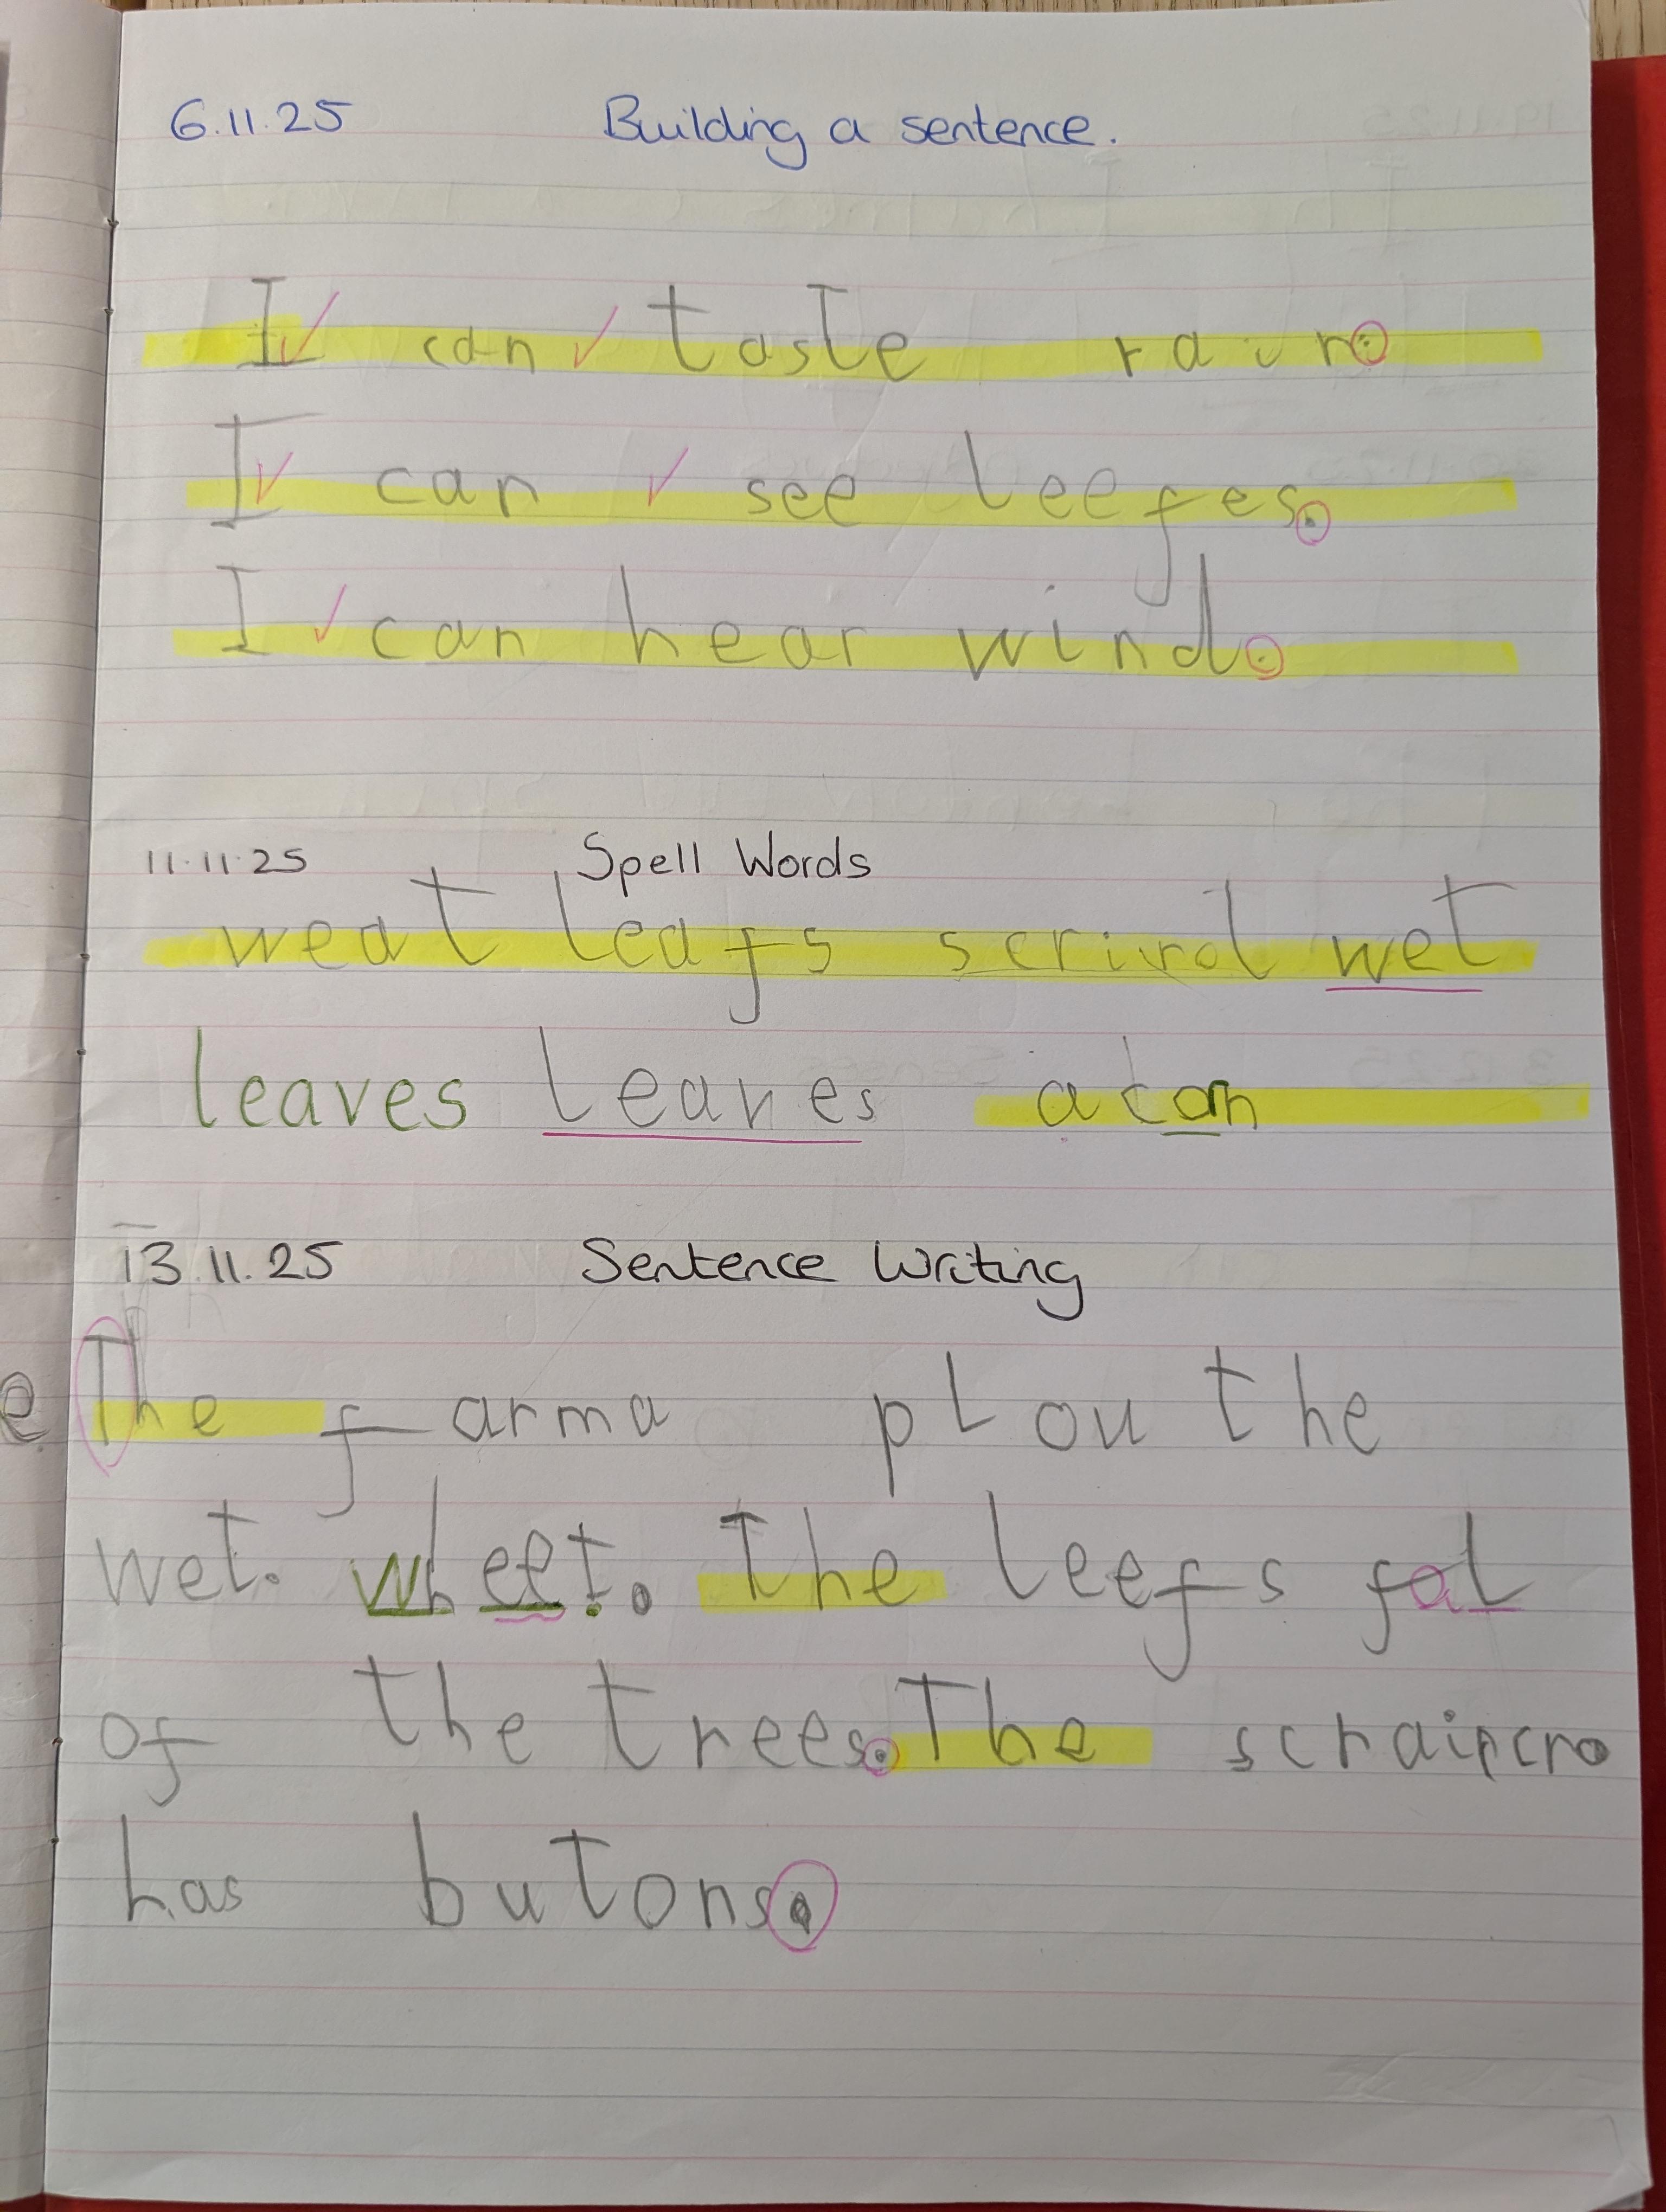 6.11.25 Building a sentence.
I can taste rain.
I can see leefes.
I can hear wind.
11.11.25 Spell Words
weat leafs scrirol wet
leaves leaves acorn
13.11.25 Sentence Writing
The farma plou the
wet. wheet. The leefs fal
of the trees. The
has butons.